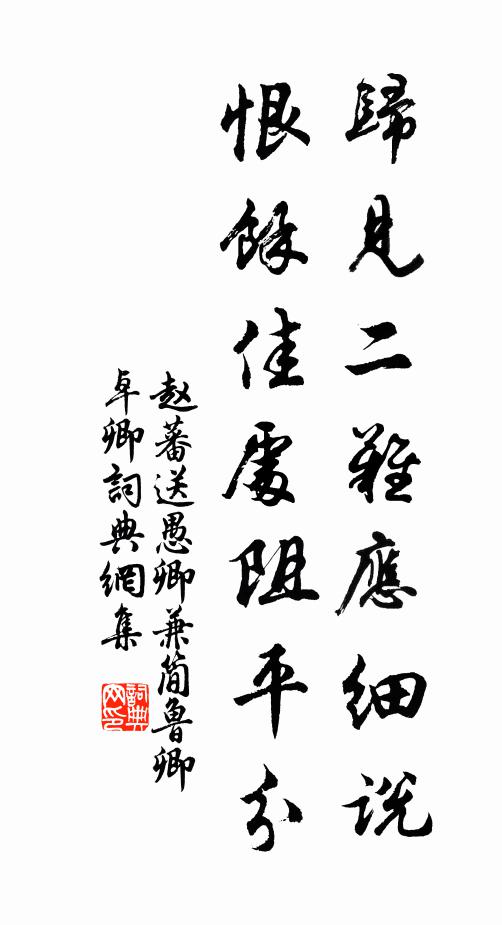 歸見二難應細說
恨餘佳處阻平分
赵蕃送愚卿兼简魯卿
卓卿詞典網集
詞典网印